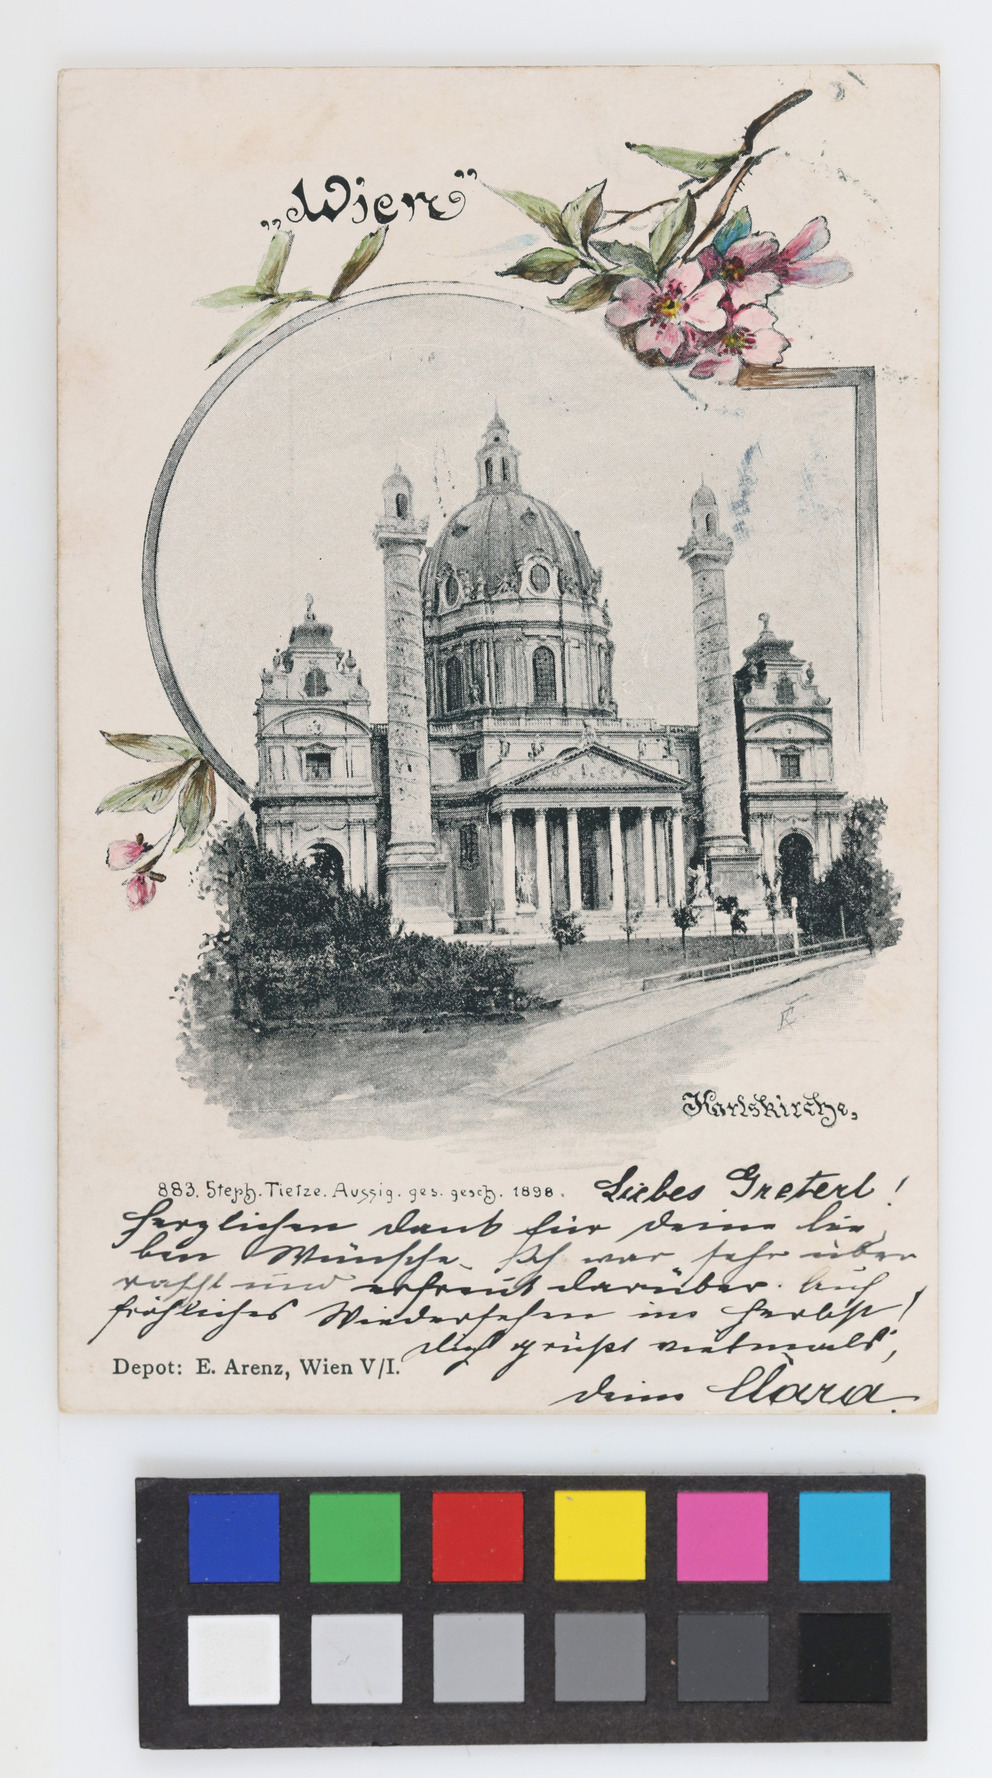 „Wien”
Karlskirche,
883. Steph. Tietze. Aussig. ges. gesch. 1898.
Liebes Greterl!
Herzlichen Dank für Deine lie
ben Wünsche. Ich war sehr über
rascht und erfreut darüber. Auf
fröhliches Wiedersehen im Herbst!
Dich grüßt vielmals,
Depot: E. Arenz, Wien V/I.
Deine Clara.